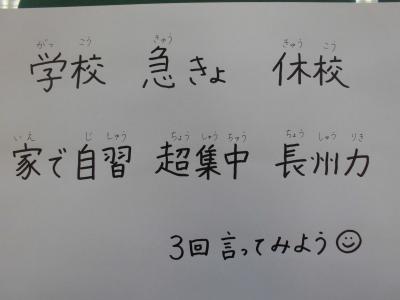 がっ こう きゅう きゅう こう
学校 急きょ 休校
いえ じ しゅう ちょう しゅう ちゅう ちょう しゅう りき
家で自習 超集中 長州力
3回言ってみよう☺